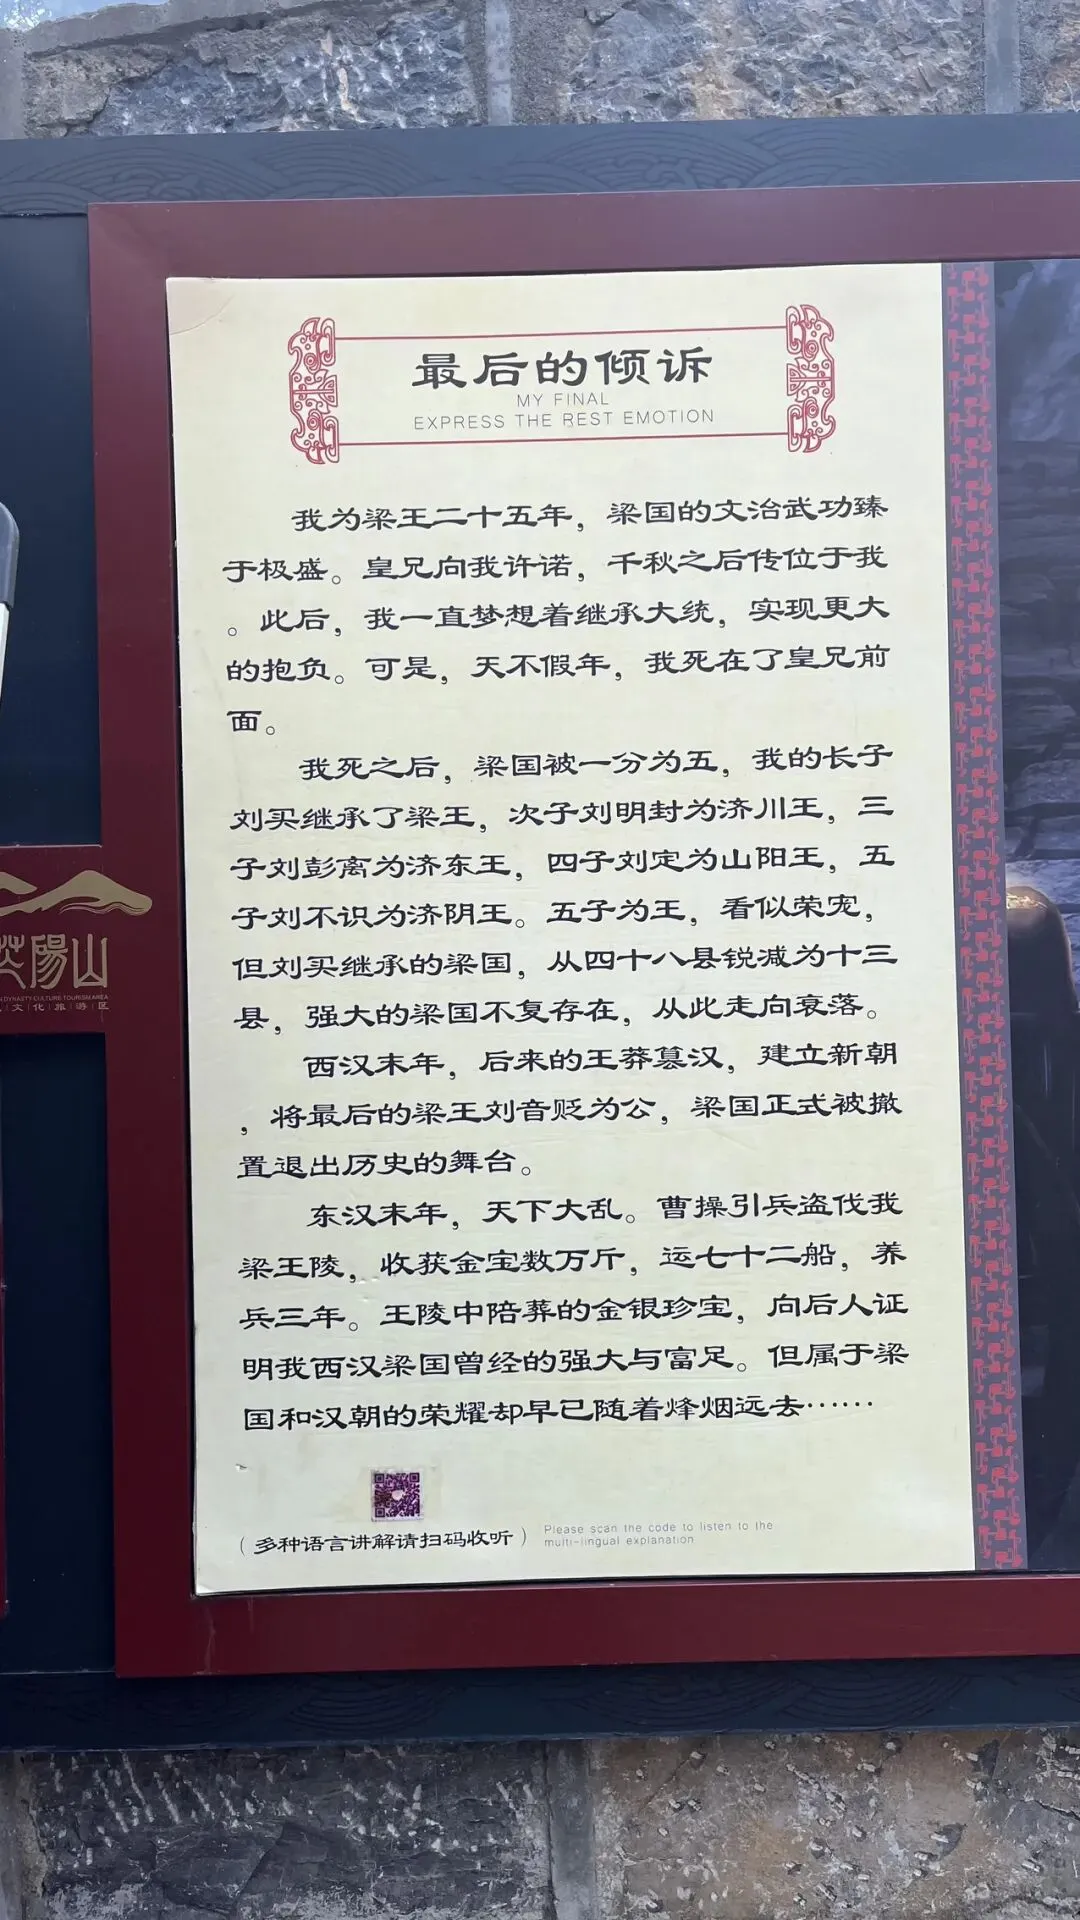 最后的倾诉
MY FINAL
EXPRESS THE REST EMOTION
我为梁王二十五年，梁国的文治武功臻
于极盛。皇兄向我许诺，千秋之后传位于我
。此后，我一直梦想着继承大统，实现更大
的抱负。可是，天不假年，我死在了皇兄前
面。
我死之后，梁国被一分为五，我的长子
刘买继承了梁王，次子刘明封为济川王，三
子刘彭离为济东王，四子刘定为山阳王，五
子刘不识为济阴王。五子为王，看似荣宠，
但刘买继承的梁国，从四十八县锐减为十三
县，强大的梁国不复存在，从此走向衰落。
西汉末年，后来的王莽篡汉，建立新朝
，将最后的梁王刘音贬为公，梁国正式被撤
置退出历史的舞台。
东汉末年，天下大乱。曹操引兵盗伐我
梁王陵，收获金宝数万斤，运七十二船，养
兵三年。王陵中陪葬的金银珍宝，向后人证
明我西汉梁国曾经的强大与富足。但属于梁
国和汉朝的荣耀却早已随着烽烟远去……
（多种语言讲解请扫码收听）
Please scan the code to listen to the
multi-lingual explanation
陽山
DYNASTY CULTURE TOURISM AREA
文化旅游区